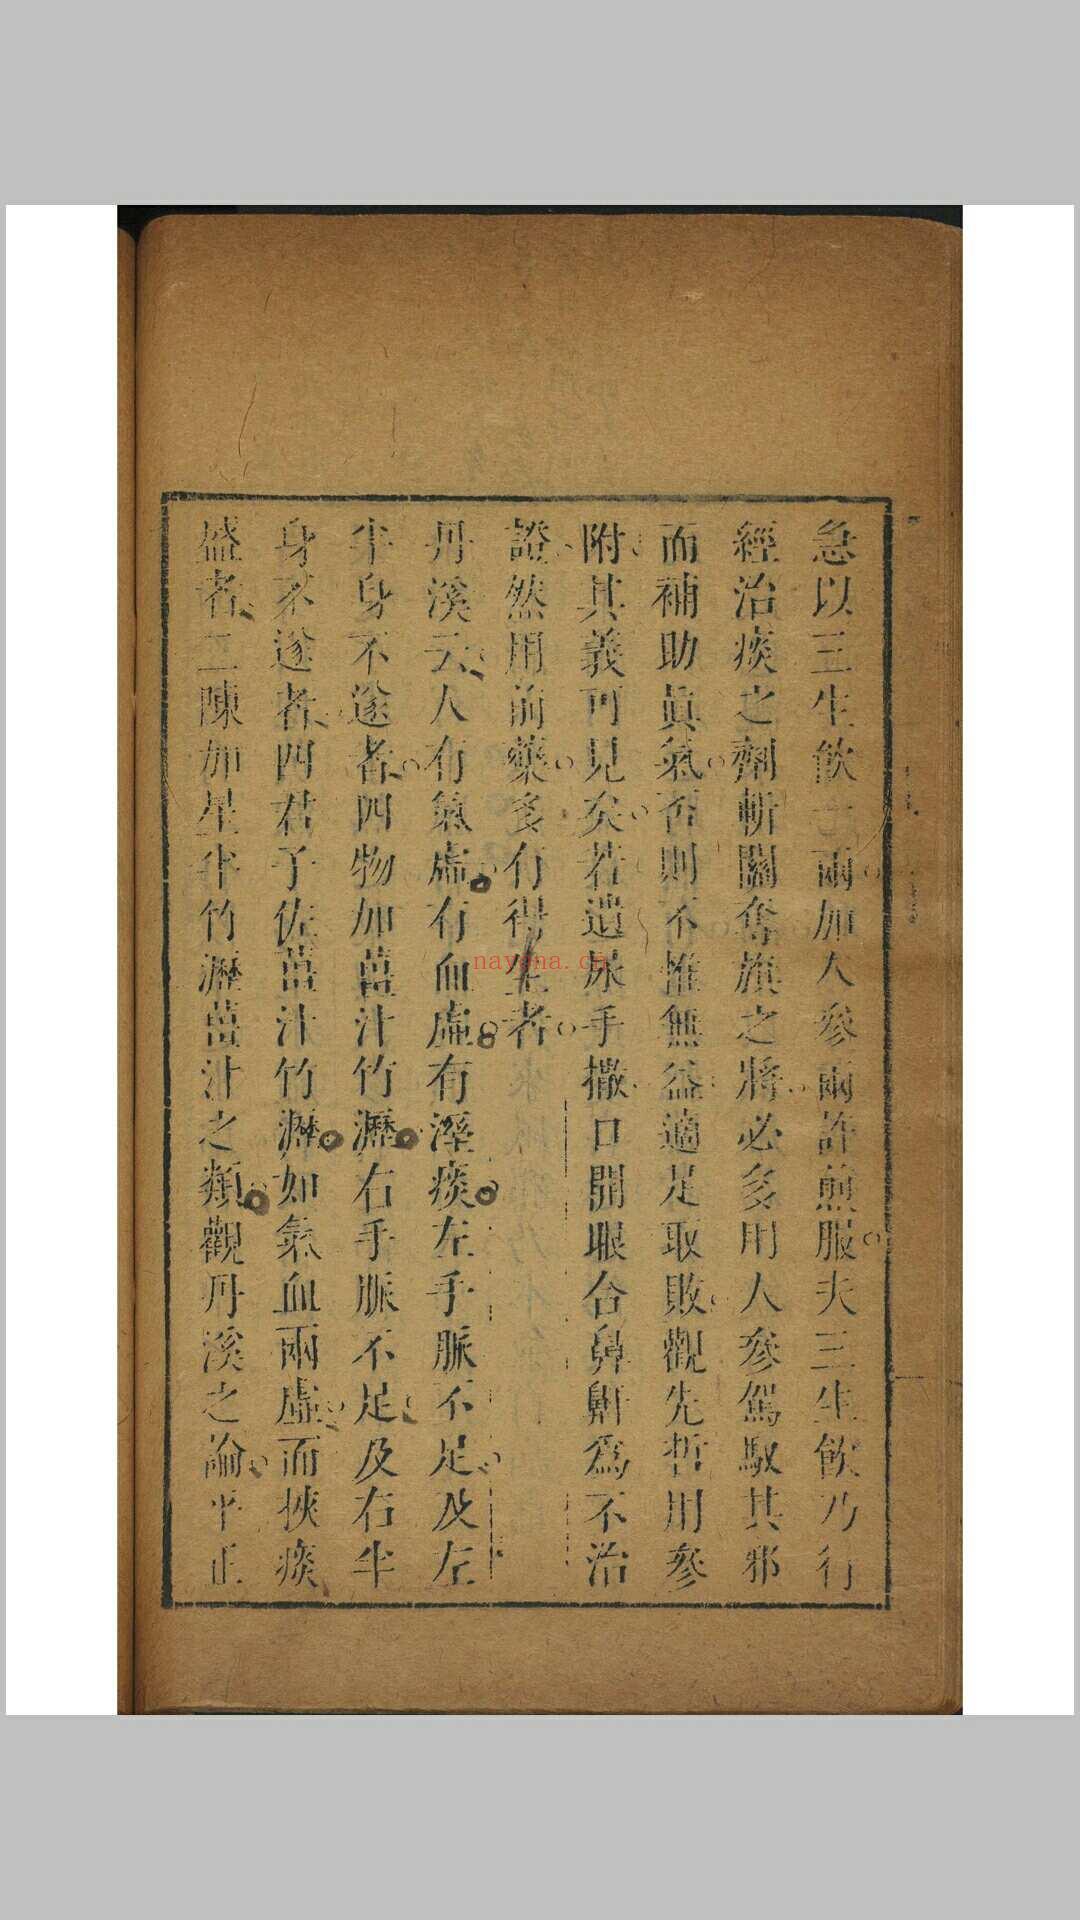 急以三生飲七兩加人參兩許煎服夫三生飲乃行
經治痰之劑斬關奪旗之將必多用人參駕馭其邪
而補助眞氣否則不惟無益適足取敗觀先哲用參
附其義可見矣若遺尿手撒口開眼合鼻鼾爲不治
證然用前藥多有得生者
丹溪云人有氣虛有血虛有溼痰左手脈不足及左
半身不遂者四物加薑汁竹瀝右手脈不足及右半
身不遂者四君子佐薑汁竹瀝如氣血兩虛而挾痰
盛者二陳加星半竹瀝薑汁之類觀丹溪之論平正
nayona.cn